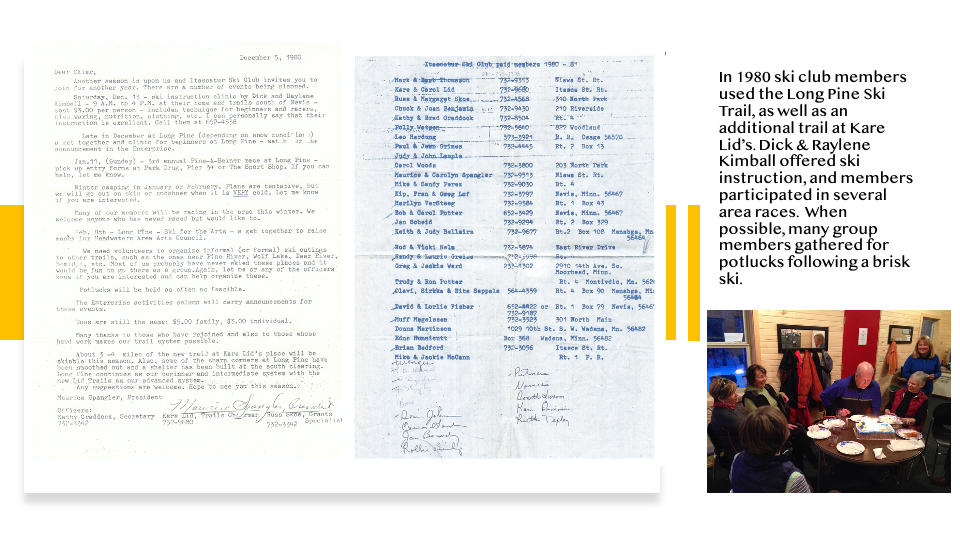 December 5, 1980
Dear Skier,
Another season is upon us and Itascatur Ski Club invites you to
join for another year. There are a number of events being planned.
Saturday, Dec. 13 - ski instruction clinic by Dick and Raylene
Kimball - 9 A.M. to 4 P.M. at their home and trails south of Nevis -
cost $3.00 per person - includes technique for beginners and racers,
plus waxing, nutrition, clothing, etc. I can personally say that their
instruction is excellent. Call them at 652-4538
Late in December at Long Pine (depending on snow conditions)
a get together and clinic for beginners at Long Pine - watch for the
announcement in the Enterprise.
Jan.11, (Sunday) - 3rd annual Pine-A-Beiner race at Long Pine -
pick up entry forms at Park Drug, Pier 34 or The Sport Shop. If you can
help, let me know.
Winter camping in January or February. Plans are tentative, but
we will go out on skis or snowshoes when it is VERY cold. Let me know
if you are interested.
Many of our members will be racing in the area this winter. We
welcome anyone who has never raced but would like to.
Feb. 8th - Long Pine - Ski for the Arts - a get together to raise
money for Headwaters Area Arts Council.
We need volunteers to organize informal (or formal) ski outings
to other trails, such as the ones near Pine River, Wolf Lake, Deer River,
Bemidji, etc. Most of us probably have never skied these places and it
would be fun to go there as a group. Again, let me or any of the officers
know if you are interested and can help organize these.
Potlucks will be held as often as feasible.
The Enterprise activities column will carry announcements for
these events.
Dues are still the same: $5.00 family, $3.00 individual.
Many thanks to those who have rejoined and also to those whose
hard work makes our trail system possible.
About 3 -4 miles of the new trail at Kare Lid's place will be
skiable this season. Also, some of the sharp corners at Long Pine have
been smoothed out and a shelter has been built at the south clearing.
Long Pine continues as our beginner and intermediate system with the
new Lid Trails as our advanced system.
Any suggestions are welcome. Hope to see you this season.
Maurice Spangler, President
Officers:
Kathy Craddock, Secretary Kare Lid, Trails Chairman, Russ Skoe, Grants Specialist
732-3342 732-9680 732-3342
Itascatur Ski Club paid members 1980 - 81
Mark & Barb Thomason 732-9353
Kare & Carol Lid 732-9680 Itasca St. Rt.
Russ & Margaret Skoe 732-4568 340 North Park
Chuck & Joan Benjamin 732-9430 210 Riverside
Kathy & Brad Craddock 732-8504 Rt. 4
Polly 732-9840 877 Woodland
Leo Hardung 573-3924 R. R. Osage 56570
Paul & Jawn Grimes 732-4445 Rt. 2 Box 13
Judy & John Lemple
Carol Woods 732-3800 203 North Park
Maurice & Carolyn Spangler 732-9513 Itasca St. Rt.
Mike & Sandy Perez 732-9030 Rt. 4
Kip, Fran & Greg Lof 732-3797 Nevis, Minn. 56467
Marilyn VerSteeg 732-9584 Rt. 1 Box 43
Bob & Carol Potter 652-3429 Nevis, Minn. 56467
Jan Sobeid 732-9294 Rt. 2 Box 329
Keith & Judy Bellaira 732-9677 Rt.2 Box 108 Menahga, Mn. 56464
Rod & Vicki Helm 732-5874 East River Drive
Randy & Laurie Greiss
Greg & Jackie Ward 233-8302 2910 14th Ave. So.
Moorhead, Minn.
Trudy & Ron Potter Rt. 4 Montivdio, Mn.
Olavi, Sirkka & Rita Seppala 564-4359 Rt. 4 Box 90 Menahga, 56464
David & Lorlie Fisher 652-4422 or Rt. 1 Box 79 Nevis, 56467
732-9182
Muff Magelssen 732-3523 301 North Main
Donna Martinson 1029 10th St. S. W. Wadena, Mn. 56482
Edna Hunnicutt Box 368 Wadena, Minn. 56482
Brian Bedford 732-3056 Itasca St. Rt.
Mike & Jackie McCann Rt. 1 P. R.
In 1980 ski club members
used the Long Pine Ski
Trail, as well as an
additional trail at Kare
Lid's. Dick & Raylene
Kimball offered ski
instruction, and members
participated in several
area races. When
possible, many group
members gathered for
potlucks following a brisk
ski.